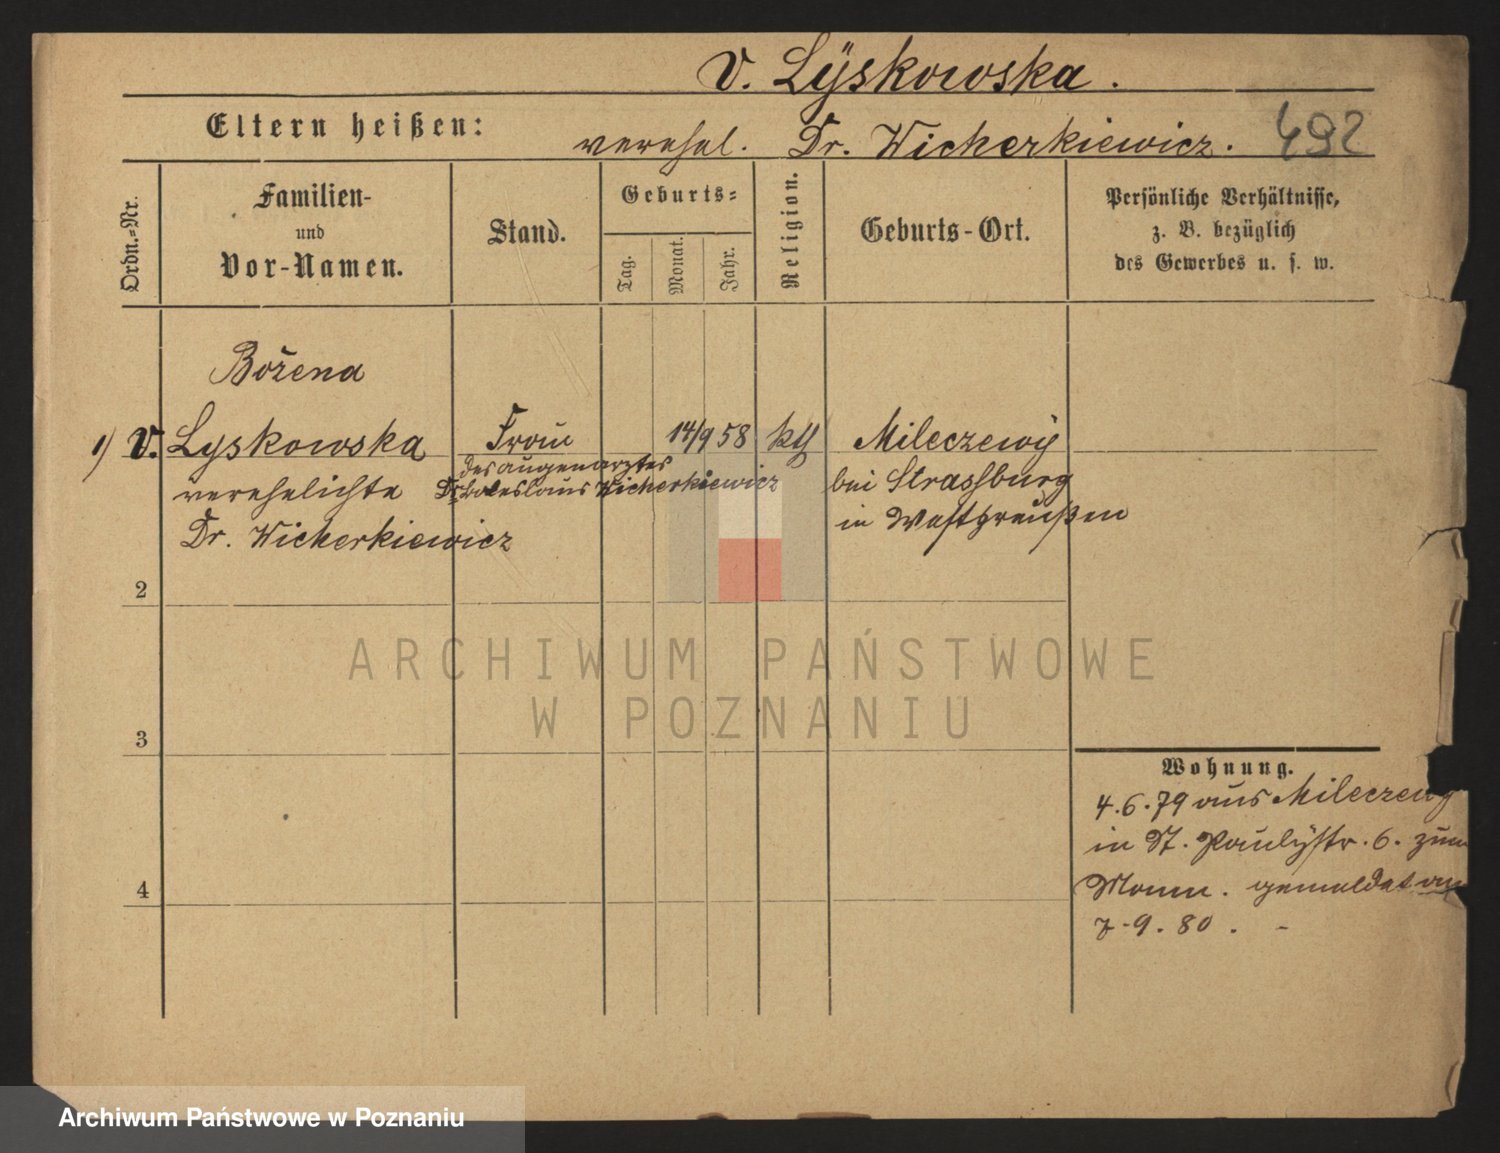 v. Lÿskowska.
Eltern heißen:
verehel. Dr. Wicherkiewicz.
492
Ordn.=Nr.
Familien-
und
Vor-Namen.
Stand.
Geburts=
Tag.
Monat.
Jahr.
Religion.
Geburts-Ort.
Persönliche Verhältnisse,
z. B. bezüglich
des Gewerbes u. s. w.
Božena
1) v. Lyskowska
verehelichte
Dr. Wicherkiewicz
Frau
des Augenarztes
Dr. Boleslaus Wicherkiewicz
14/9 58
kth
Mileczewÿ
bei Strasburg
in Westpreußen
2
3
4
Wohnung.
4.6.79 aus Mileczewy
in St. Paulystr. 6. zum
Mann. gemeldet am
7.9.80. -
ARCHIWUM PAŃSTWOWE
W POZNANIU
Archiwum Państwowe w Poznaniu